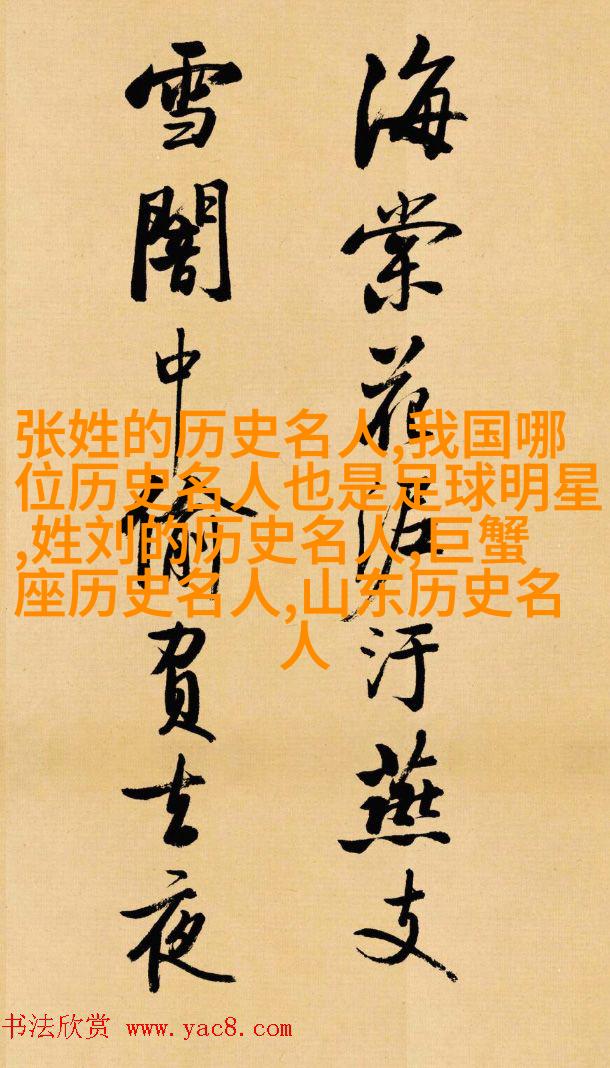 海棠花泥汙燕支
雪闇中偷負去夜
张姓的历史名人,我国哪
位历史名人也是足球明星
,姓刘的历史名人,巨蟹
座历史名人,山东历史名
人
书法欣赏 www.yac8.com